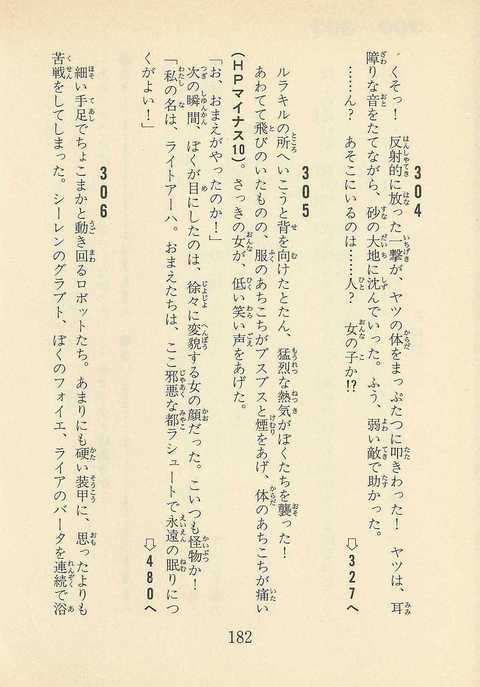 304
くそっ！　反射的に放った一撃が、ヤツの体をまっぷたつに叩きわった！　ヤツは、耳
障りな音をたてながら、砂の大地に沈んでいった。ふう、弱い敵で助かった。
……ん？　あそこにいるのは……人？　女の子か!?
⇨327へ
305
ルラキルの所へいこうと背を向けたとたん、猛烈な熱気がぼくたちを襲った！
あわてて飛びのいたものの、服のあちこちがブスブスと煙をあげ、体のあちこちが痛い
（HPマイナス10）。さっきの女が、低い笑い声をあげた。
「お、おまえがやったのか！」
次の瞬間、ぼくが目にしたのは、徐々に変貌する女の顔だった。こいつも怪物か！
「私の名は、ライトアーハ。おまえたちは、ここ邪悪な都ラシュートで永遠の眠りにつ
くがよい！」
⇨480へ
306
細い手足でちょこまかと動き回るロボットたち。あまりにも硬い装甲に、思ったよりも
苦戦をしてしまった。シーレンのグラブト、ぼくのフォイエ、ライアのバータを連続で浴
182